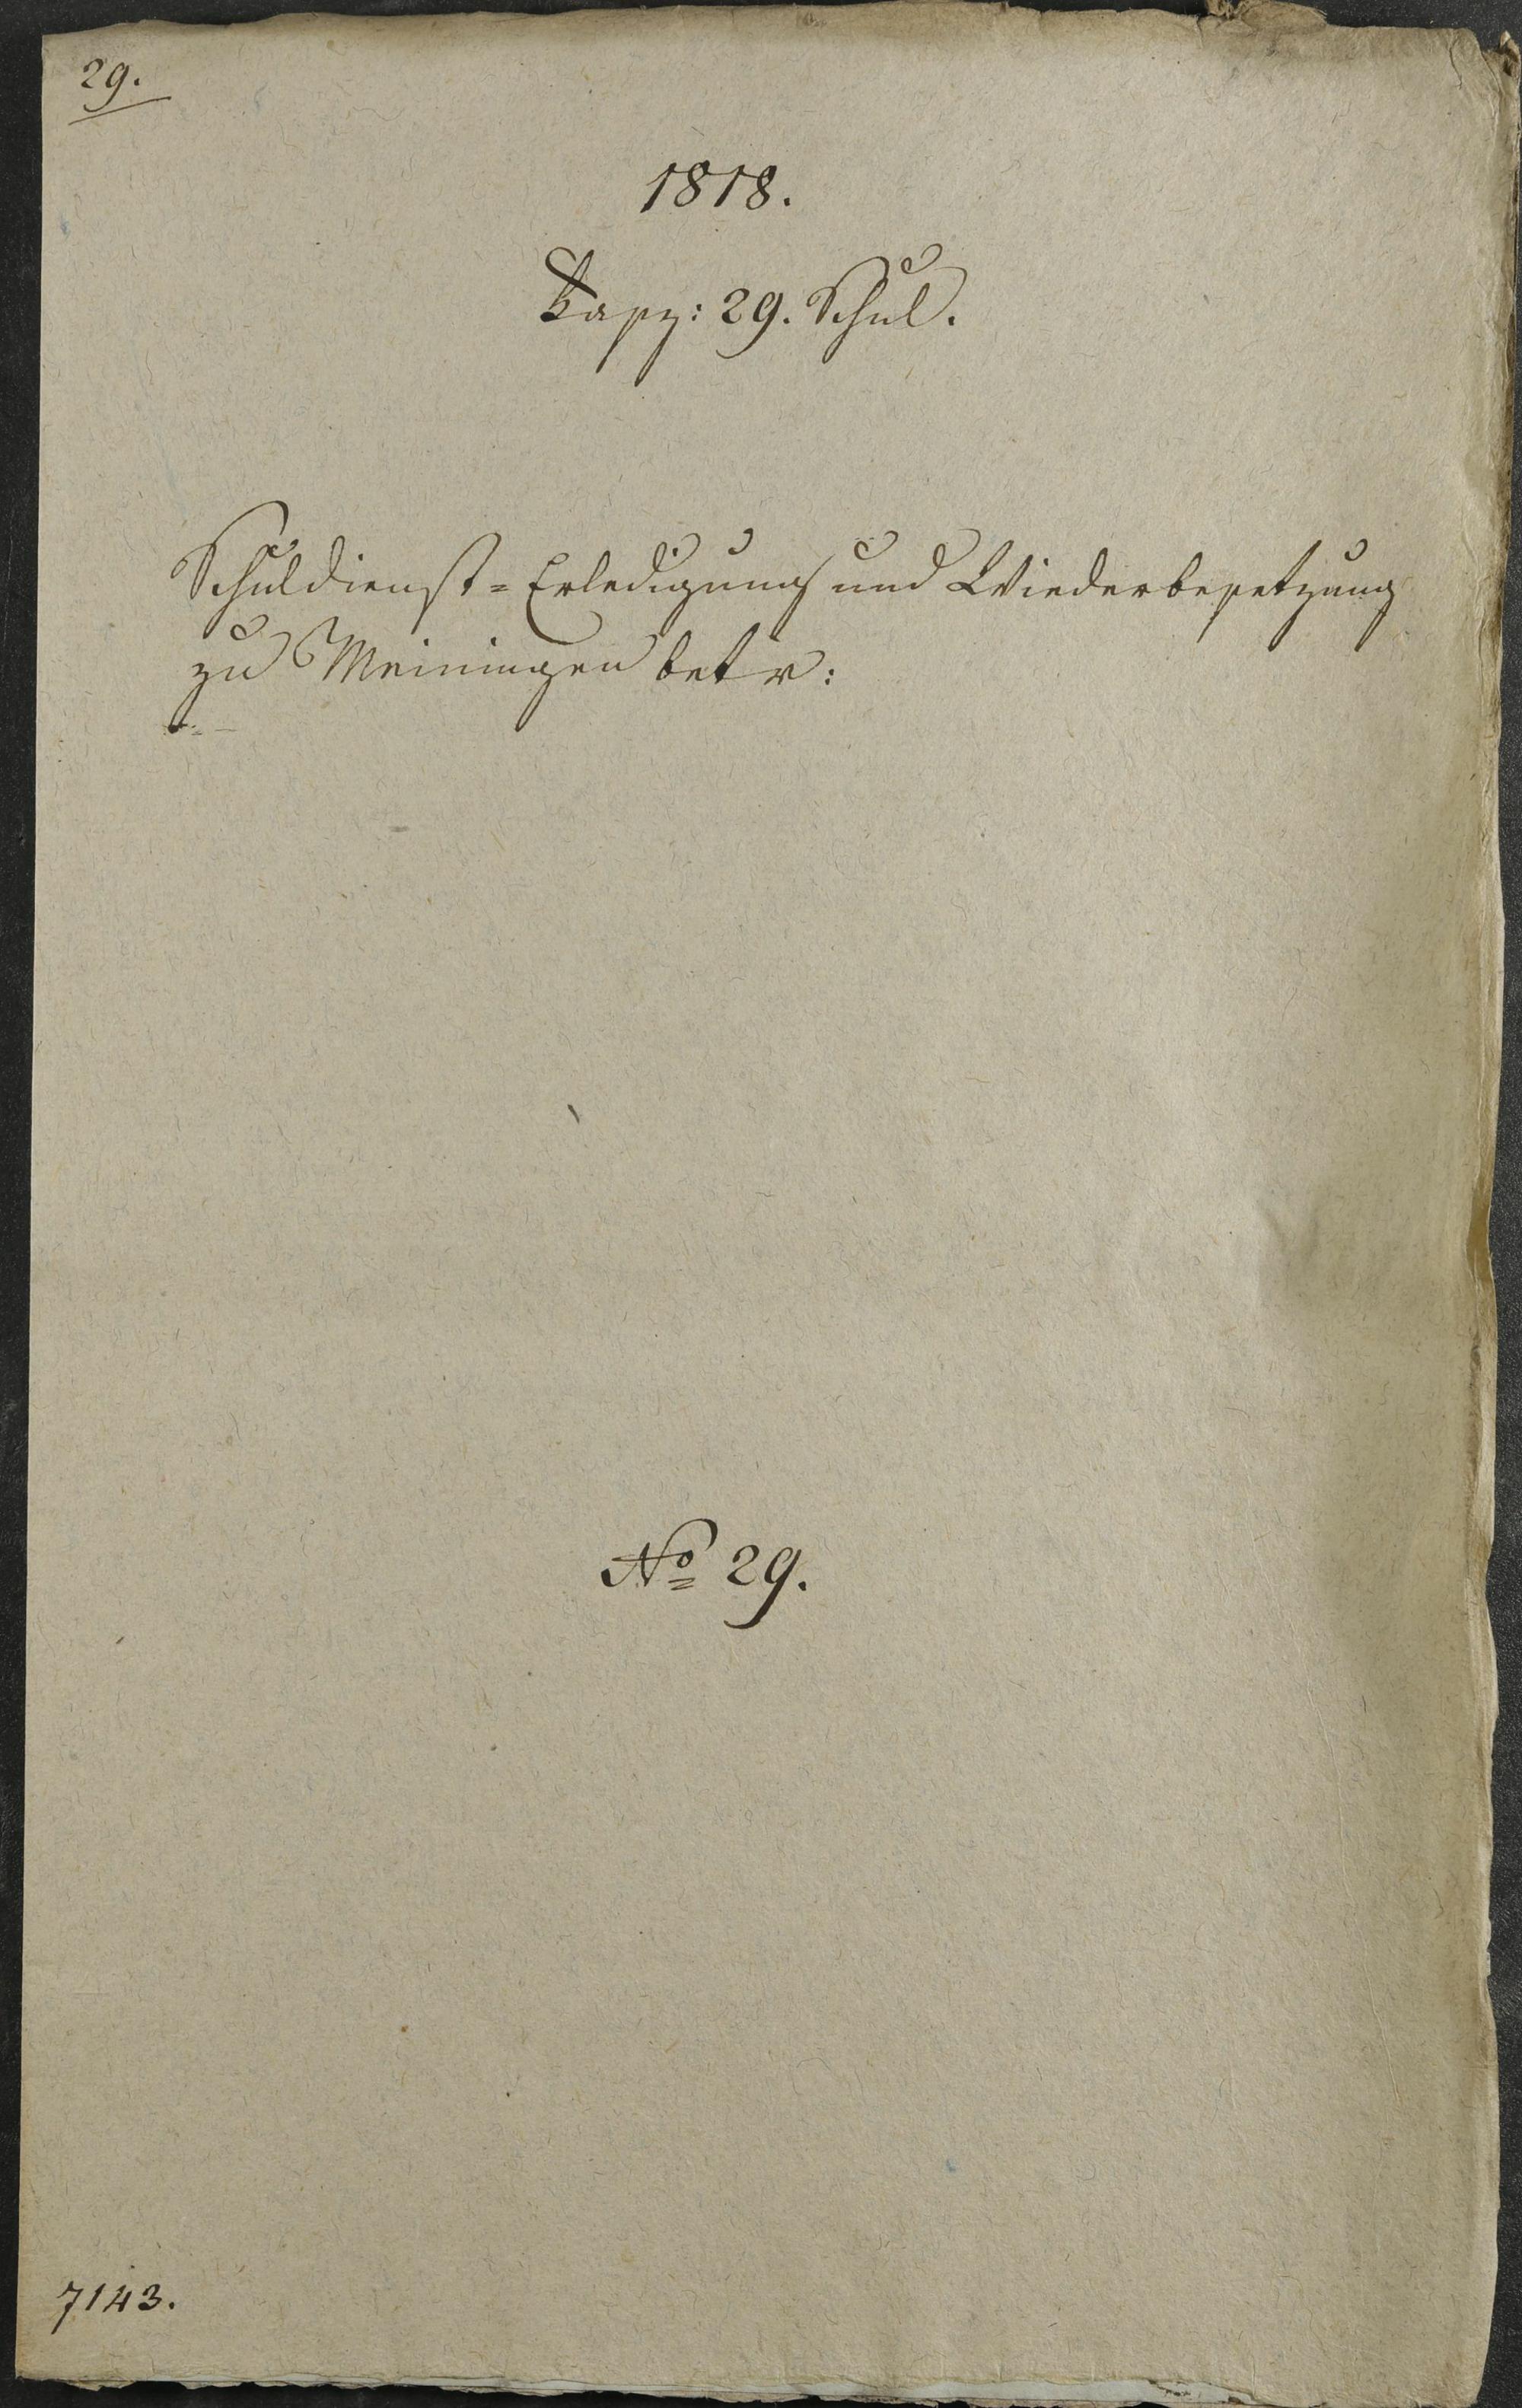 29.
1818.
Fasz: 29. Schul.
Schuldienst-Erledigung und Wiederbesetzung
zu Meiningen betr:
No 29.
7143.